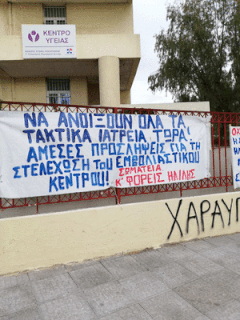 ΚΕΝΤΡΟ
ΥΓΕΙΑΣ
ΝΑ ΑΝΟΙΞΟΥΝ ΟΛΑ ΤΑ
ΤΑΚΤΙΚΑ ΙΑΤΡΕΙΑ, ΤΩΡΑ!
ΑΜΕΣΕΣ ΠΡΟΣΛΗΨΕΙΣ ΓΙΑ ΤΗ
ΣΤΕΛΕΧΩΣΗ ΤΟΥ ΕΜΒΟΛΙΑΣΤΙΚΟΥ
ΚΕΝΤΡΟΥ!
ΣΩΜΑΤΕΙΑ
Κ' ΦΟΡΕΙΣ ΗΛ/ΛΗΣ
ΧΑΡΑΥΓ